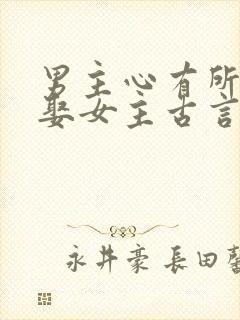 男主心有所
娶女主古言
永井豪 長田馨